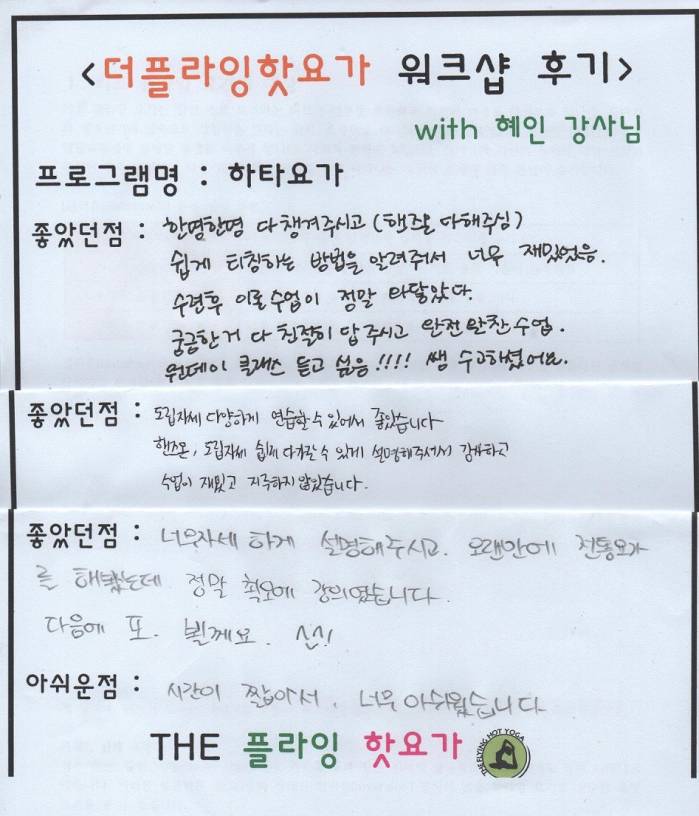 <더플라잉핫요가 워크샵 후기>
with 혜인 강사님
프로그램명 : 하타요가
좋았던점 : 한명한명 다 챙겨주시고 (핸즈온 다해주심)
쉽게 티칭하는 방법을 알려줘서 너무 재밌었음.
수련후 이론수업이 정말 와닿았다.
궁금한거 다 친절히 답 주시고 완전 알찬수업.
원데이 클래스 듣고 싶음!!!! 쌤 수고하셨어요.
좋았던점 : 도립자세 다양하게 연습할 수 있어서 좋았습니다
핸즈온, 도립자세 쉽게 다가갈 수 있게 설명해주셔서 감사하고
수업이 재밌고 지루하지 않았습니다.
좋았던점 : 너무자세 하게 설명해주시고. 오랜만에 전통요가
를 해봤는데 정말 최고에 강의였습니다.
다음에 또. 뵐께요.
아쉬운점 : 시간이 짧아서. 너무 아쉬웠습니다
THE 플라잉 핫요가
THE FLYING HOT YOGA